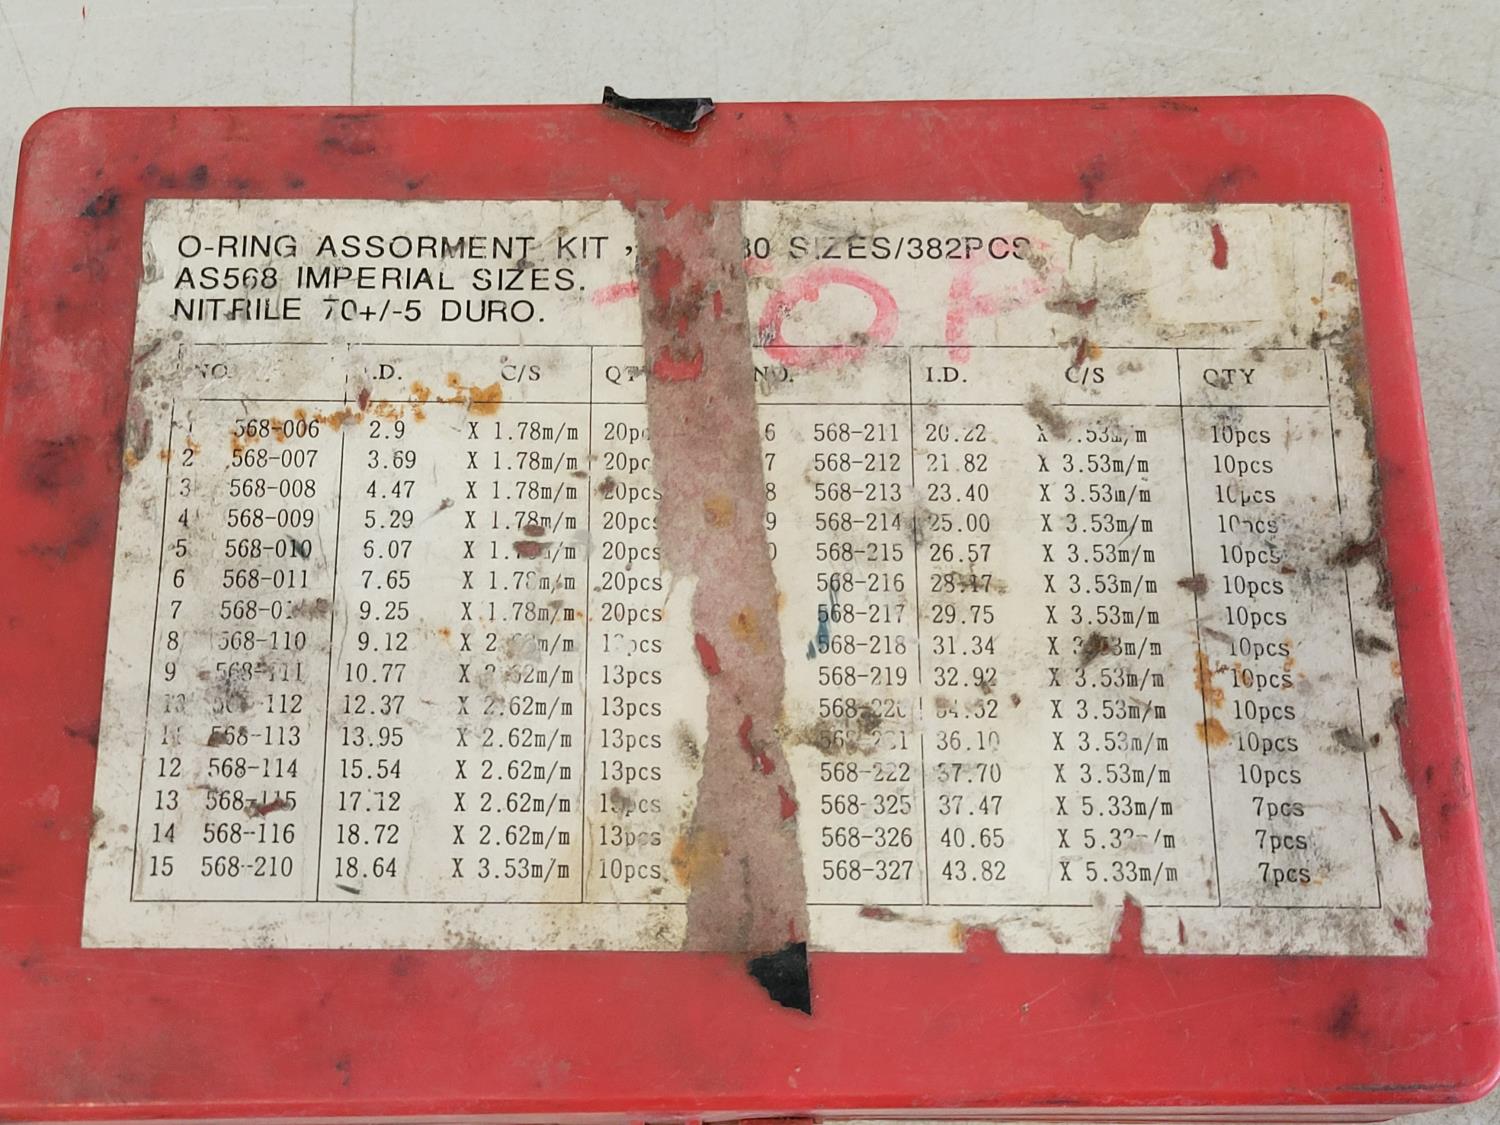 O-RING ASSORMENT KIT , 30 SIZES/382PCS
AS568 IMPERIAL SIZES.
NITRILE 70+/-5 DURO.
TOP
NO. I.D. C/S QT NO. I.D. C/S QTY
1 568-006 2.9 X 1.78m/m 20pc 6 568-211 20.22 X 3.53m/m 10pcs
2 568-007 3.69 X 1.78m/m 20pc 7 568-212 21.82 X 3.53m/m 10pcs
3 568-008 4.47 X 1.78m/m 20pcs 8 568-213 23.40 X 3.53m/m 10pcs
4 568-009 5.29 X 1.78m/m 20pcs 9 568-214 25.00 X 3.53m/m 10pcs
5 568-010 6.07 X 1.78m/m 20pcs 0 568-215 26.57 X 3.53m/m 10pcs
6 568-011 7.65 X 1.78m/m 20pcs 568-216 28.17 X 3.53m/m 10pcs
7 9.25 X 1.78m/m 20pcs 568-217 29.75 X 3.53m/m 10pcs
8 568-110 9.12 X 13pcs 568-218 31.34 X 3.53m/m 10pcs
9 568-111 10.77 X 2.62m/m 13pcs 568-219 32.92 X 3.53m/m 10pcs
10 568-112 12.37 X 2.62m/m 13pcs 568-220 34.52 X 3.53m/m 10pcs
11 568-113 13.95 X 2.62m/m 13pcs 568-221 36.10 X 3.53m/m 10pcs
12 568-114 15.54 X 2.62m/m 13pcs 568-222 37.70 X 3.53m/m 10pcs
13 568-115 17.12 X 2.62m/m 13pcs 568-325 37.47 X 5.33m/m 7pcs
14 568-116 18.72 X 2.62m/m 13pcs 568-326 40.65 X 5.33m/m 7pcs
15 568-210 18.64 X 3.53m/m 10pcs 568-327 43.82 X 5.33m/m 7pcs